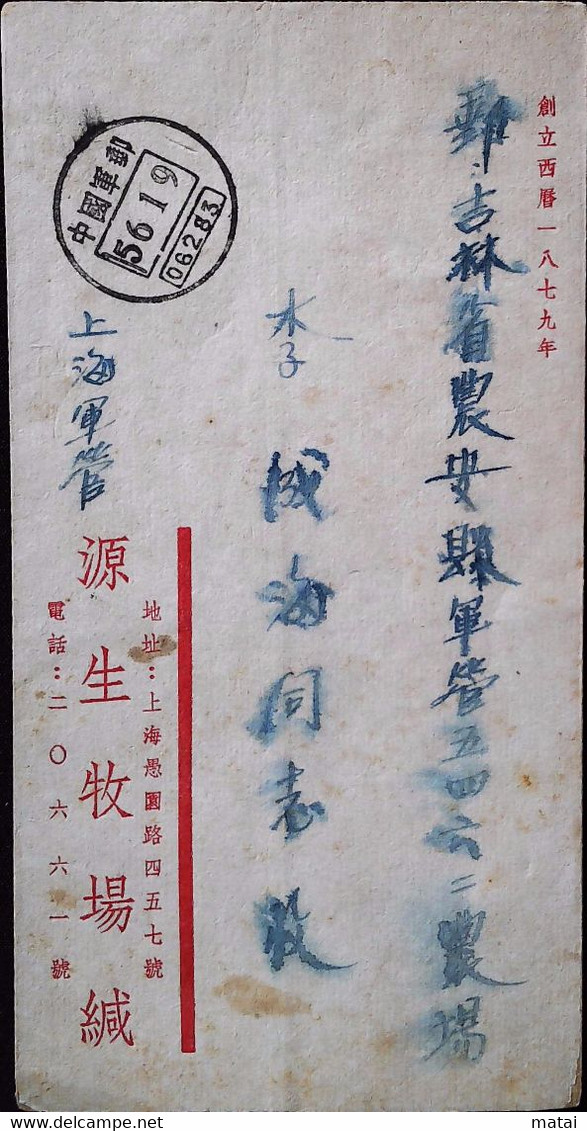 創立西曆一八七九年
郵：吉林省農安縣軍管五四六二農場
李成海同志收
中國軍郵
56 1 9
06283
上海軍管
地址：上海愚園路四五七號
源生牧場緘
電話：二〇六六一號
matai